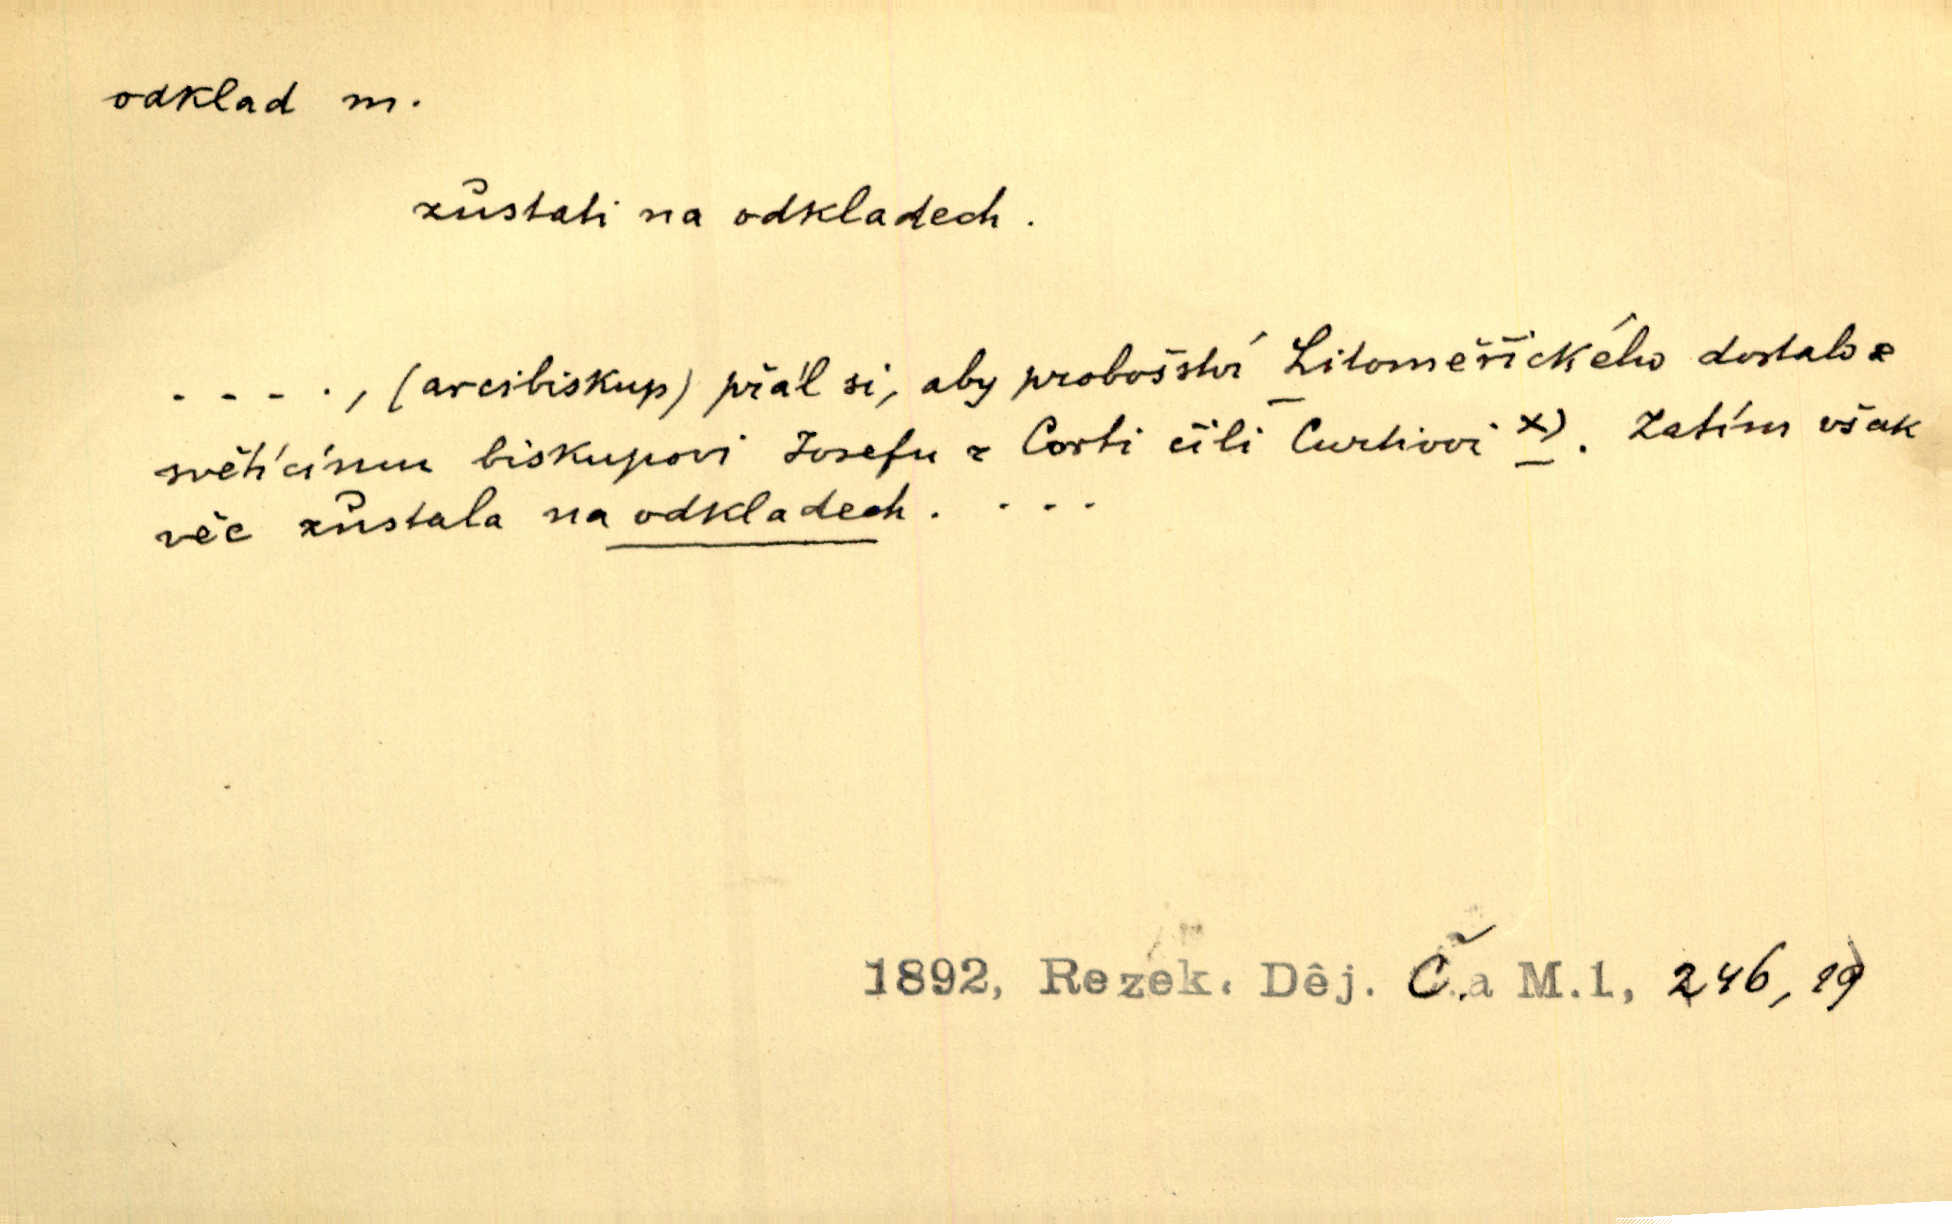 odklad m.
zůstati na odkladech.
- - - ·, (arcibiskup) přál si, aby probošství Litoměřického dostalo se
světícímu biskupovi Josefu z Corti čili Curtiovi x). Zatím však
věc zůstala na odkladech. . - - -
1892, Rezek. Děj. Č. a M.1, 246, 19